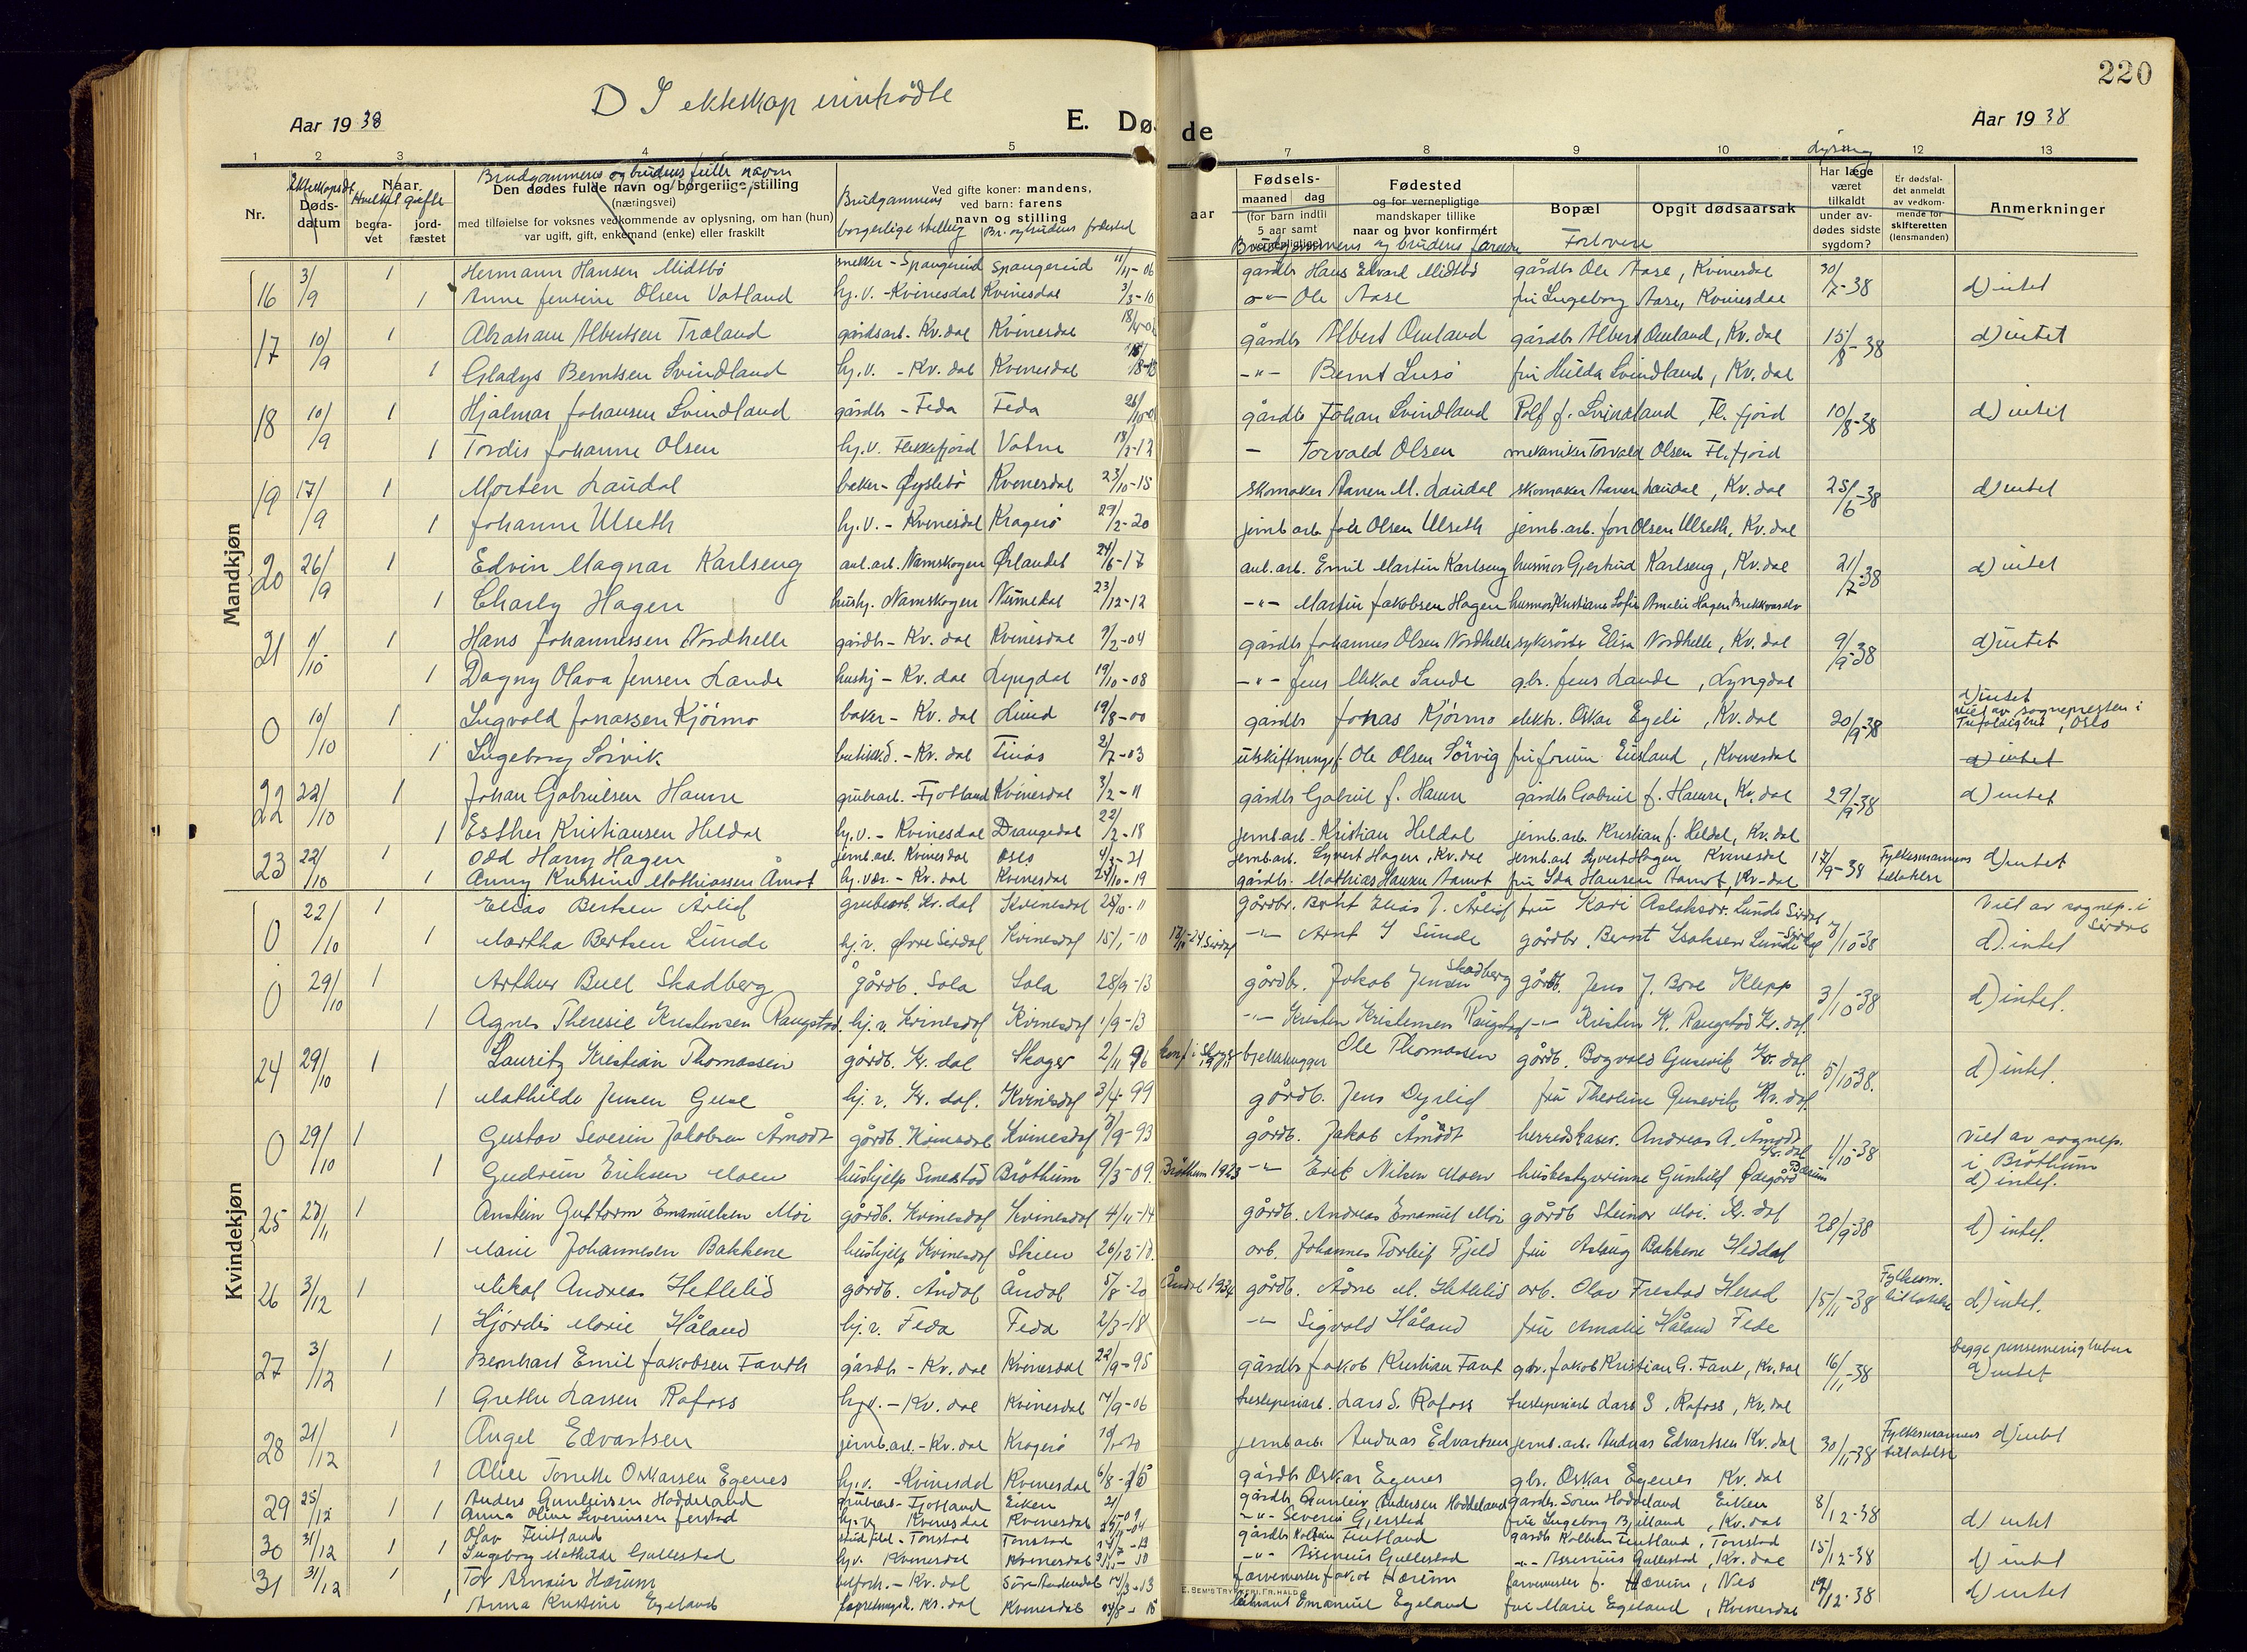 220
D I ekteskap inntrådte
Aar 1938
E. Døde
Aar 1938
1 2 3 4 5 7 8 9 10 12 13
Nr.
Ekteskapsdt.
Døds-
datum
Naar
Hvilket gifte
begra-
vet
jord-
fæstet
Brudgammens og brudens fulle navn
Den dødes fulde navn og borgerlige stilling
(næringsvei)
med tilføielse for voksnes vedkommende av oplysning, om han (hun)
var ugift, gift, enkemand (enke) eller fraskilt
Ved gifte koner: mandens,
ved barn: farens
navn og stilling
Brudgammens
borgerlige stilling
Br. og brudens fødested
aar
Fødsels-
maaned dag
(for barn indtil
5 aar samt
Fødested
og for vernepligtige
mandskaper tillike
naar og hvor konfirmert
Brudgammens og brudens farsnavn
Bopæl
Opgit dødsaarsak
Forlovere
lysning
Har læge
været
tilkaldt
under av-
dødes sidste
sygdom?
Er dødsfal-
det anmeldt
av vedkom-
mende for
skifteretten
(lensmanden)
Anmerkninger
Mandkjøn
Kvindekjøn
16 3/9 1 Hermann Hansen Midtbø snekker - Spangereid Spangereid 11/11-06 gårdbr Hans Edvard Midtbø gårdbr Ole Aase, Kvinesdal 30/7-38 d) intet
1 Anne Jensine Olsen Vatland hj.v. - Kvinesdal Kvinesdal 3/3-10 -"- Ole Aase fru Ingeborg Aase, Kvinesdal
17 10/9 1 Abraham Albertsen Træland gårdsarb. Kv.dal Kvinesdal gårdbr Albert Omland gårdbr Albert Omland, Kv.dal 15/8-38 d) intet
1 Gladys Berntsen Svindland hj.v. - Kv.dal Kvinesdal -"- Bernt Lusø fru Hulda Svindland, Kv.dal
18 10/9 1 Hjalmar Johansen Svindland gårdbr - Feda Feda gårdb Johan Svindland Rolf J. Svindland, Fl.fjord 10/8-38 d) intet
1 Tordis Johanne Olsen hj.v. Flekkefjord Vatne 18/2-12 - Torvald Olsen mekaniker Torvald Olsen Fl.fjord
19 17/9 1 Morten Laudal baker - Øyslebø Kvinesdal 23/10-15 skomaker Aanen M. Laudal skomaker Aanen Laudal, Kv.dal 25/6-38 d) intet
1 Johanne Ulseth hj.v. - Kvinesdal Kragerø 29/2-20 jernb.arb. Joh Olsen Ulseth jernb.arb. Jon Olsen Ulseth, Kv.dal
20 26/9 1 Edvin Magnar Karlseng anl.arb. Namskogen Ørlandet 24/6-17 anl.arb. Emil Martin Karlseng husmor Gjertrud Karlseng, Kv.dal 21/7-38 d) intet
1 Charly Hagen hushj. Namskogen Numedal 23/12-12 -"- Martin Jakobsen Hagen husmor Kristiane Sofie Amalie Hagen Brekkvasselv
21 1/10 1 Hans Johannessen Nordhelle gårdbr - Kv.dal Kvinesdal 9/2-04 gårdbr Johannes Olsen Nordhelle sykesøster Elisa Nordhelle, Kv.dal 9/9-38 d) intet
1 Dagny Olava Jensen Lande hushj - Kv.dal Lyngdal 19/10-08 -"- Jens Mikal Lande gbr. Jens Lande, Lyngdal
0 10/10 1 Ingvald Jonassen Kjørmo baker - Kv.dal Lund 19/8-00 gårdbr Jonas Kjørmo elektr. Oskar Egeli, Kv.dal 20/9-38 d) intet
viet av sognepresten i
Trefoldighet, Oslo
1 Ingeborg Sørvik butikkd. - Kv.dal Tinås 2/7-03 utskiftningsf. Ole Olsen Sørvig fru Jorunn Eusland, Kvinesdal d) intet
22 22/10 1 Johan Gabrielsen Haure grubearb. - Fjotland Kvinesdal 3/2-11 gårdbr Gabriel J. Haure gårdbr Gabriel J. Haure, Kv.dal 29/9-38 d) intet
1 Esther Kristiansen Heldal hj.v. - Kvinesdal Drangedal 22/2-18 jernb.arb - Kristian Heldal jernb.arb Kristian J. Heldal, Kv.dal
23 22/10 1 Odd Harry Hagen jernb.arb. Kvinesdal Oslo 4/3-21 jernb.arb. Syvert Hagen, Kv.dal jernb.arb Syvert Hagen Kvinesdal 17/9-38 Fylkesmannens tillatelse d) intet
1 Anny Kristine Mathiassen Åmot hj.vær. - Kv.dal Kvinesdal 24/10-19 gårdbr. Mathias Hansen Aamot fru Ida Hansen Aamot, Kv-dal
0 22/10 1 Elias Bertsen Årlid grubearb. Kv.dal Kvinesdal 28/10-11 gårdbr. Berht Elias J. Årlid fru Kari Aslaksdr. Lunde Sirdal 7/10-38 Viet av sognep. i
Sirdal
1 Martha Bertsen Lunde hj.v. Øvre Sirdal Kvinesdal 15/1-10 -"- Arnt I Lunde gårdbr. Bernt Isaksen Lunde Sirdal d) intet
0 29/10 1 Arthur Buel Skadberg gårdb. Sola Sola 28/9-13 gårdbr. Jakob Jensen Skadberg gårdb. Jens J. Bore Klepp 3/10-38 d) intet.
1 Agnes Theresie Kristensen Raugstad hj.v. Kvinesdal Kvinesdal 1/9-13 -"- Kristen Kristensen Raugstad -"- Kristen K. Raugstad Kv.dal.
24 29/10 1 Lauritz Kristian Thomassen gårdb. Kv.dal Skoger 2/11 96 konf. i Skoger 1911 fjellhugger Ole Thomassen gårdb. Bogvald Gusevik Kv.dal. 5/10-38. d) intet.
1 Mathilde Jensen Guse hj.v. Kv.dal. Kvinesdal 3/4-99 gårdb. Jens Dyrlid fru Theoline Gusevik Kv.dal.
0 29/10 1 Gustav Severin Jakobsen Åmodt gårdb. Kvinesdal Kvinesdal 7/9-93 gårdb. Jakob Åmodt herredskaser. Andreas A. Åmodt Kv.dal 1/10-38 Viet av sognep.
i Brøttum
d) intet.
1 Gudrun Eriksen Moen hushjelp Smestad Brøttum 9/3-09. Brøttum 1923 -"- Erik Nilsen Moen husbestyrerinne Gunhild Ødegård Bærum
25 23/11 1 Anstein Guttorm Emanuelsen Moi gårdb. Kvinesdal Kvinesdal 4/11-14 gårdb. Andreas Emanuel Moi gårdb Steinar Moi. Kv.dal 28/9-38 d) intet.
1 Marie Johannesen Bakkene hushjelp Kvinesdal Skien 26/12-18. arb. Johannes Torleif Fjeld fru Aslaug Bakkene Heddal
26 3/12 1 Mikal Andreas Hetlelid gårdb. Åndal Åndal 5/8-20 Åndal 1934 gårdb. Ådne M. Hetlelid arb. Olav Frestad Herad 15/11-38 Fylkesm. tillatelse d) intet.
1 Hjørdis Marie Håland hj.v. Feda Feda 2/3-18 -"- Sigvald Håland fru Amalie Håland Feda
27 3/12 1 Bernhart Emil Jakobsen Fanth gårdbr - Kv.dal Kvinesdal 22/9-95 gårdbr Jakob Kristian Fant gbr. Jakob Kristian G. Fant, Kv.dal 16/11-38 begge pinsemenigheten
d) intet
1 Grethe Larsen Rafoss hj.v. - Kv.dal Kvinesdal 14/9-06 tresliperiarb. Lars S. Rafoss tresliperiarb Lars S. Rafoss, Kv.dal
28 21/12 1 Angel Edvartsen jernb.arb. - Kv.dal Kragerø jernb.arb. Andreas Edvartsen jernb.arb. Andreas Edvartsen Kv.dal 30/11-38 Fylkesmannens tillatelse d) intet
1 Alice Tomette Oskarsen Egenes hj.v. - Kvinesdal Kvinesdal 6/8- gårdbr Oskar Egenes gbr. Oskar Egenes Kv.dal
29 25/12 1 Anders Gunleivsen Hoddeland grubearb - Fjotland Eiken gårdbr Gunleiv Andersen Hoddeland gårdbr. Søren Hoddeland Eiken 8/12-38 d) intet
1 Anna Oline Severinsen Jerstad hj.v. Kvinesdal Kvinesdal -"- Severin Gjerstad fru Ingeborg Bjelland, Kv.dal
30 31/12 1 Olav Fintland Tonstad Tonstad gårdbr Kolbein Fintland gårdb Kolbein Fintland, Tonstad 15/12-38 d) intet
1 Ingeborg Mathilde Gullestad hj.v. Kvinesdal Kvinesdal -"- Assenius Gullestad -"- Assenius Gullestad, Kv.dal
31 31/12 1 Tor Arnair Hærum - Kv.dal Søre Audnedal farvemester Jakob Hærum farvemester J. Hærum, Nes 19/12-38 d) intet
1 Anna Kristine Egeland Kv.dal Kvinesdal Emanuel Egeland fru Marie Egeland, Kvinesdal
E. SEM'S TRYKKERI, FR.HALD